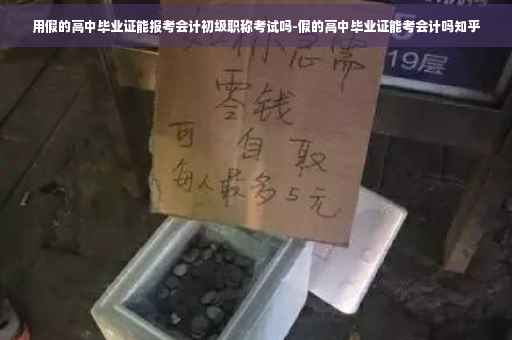 用假的高中毕业证能报考会计初级职称考试吗-假的高中毕业证能考会计吗知乎
你急需
19层
零钱
可 自 取
每人最多5元